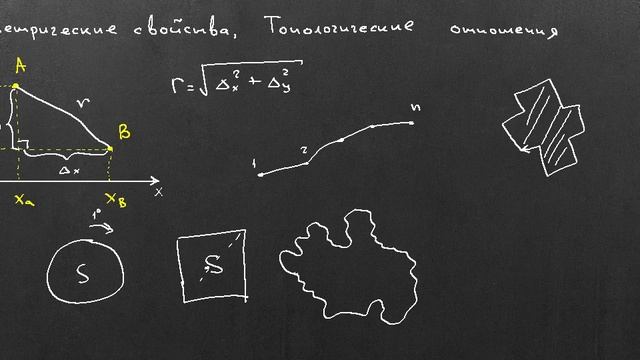 етрические свойства, Топологические отношения
A
r
B
Δx
x
xa
xB
r = √Δx² + Δy²
1
2
n
1°
S
S